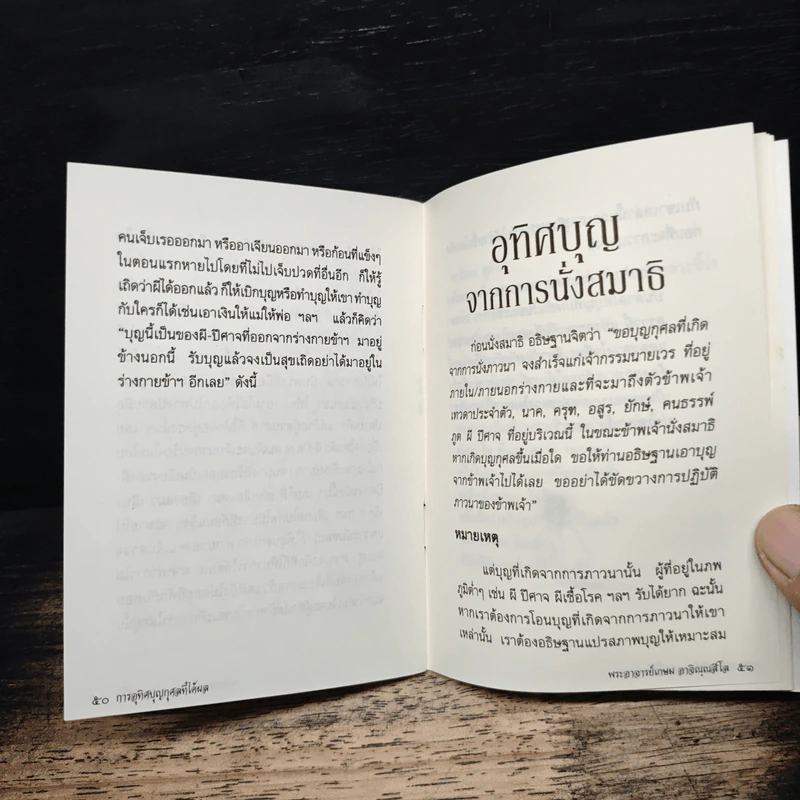 คนเจ็บเรอออกมา หรืออาเจียนออกมา หรือก้อนที่แข็งๆ
ในตอนแรกหายไปโดยที่ไม่ไปเจ็บปวดที่อื่นอีก ก็ให้รู้
เถิดว่าผีได้ออกแล้ว ก็ให้เบิกบุญหรือทำบุญให้เขา ทำบุญ
กับใครก็ได้เช่นเอาเงินให้แม่ให้พ่อ ฯลฯ แล้วก็คิดว่า
“บุญนี้เป็นของผี-ปีศาจที่ออกจากร่างกายข้าฯ มาอยู่
ข้างนอกนี้ รับบุญแล้วจงเป็นสุขเถิดอย่าได้มาอยู่ใน
ร่างกายข้าฯ อีกเลย” ดังนี้
๕๐ การอุทิศบุญกุศลที่ได้ผล
อุทิศบุญ
จากการนั่งสมาธิ
ก่อนนั่งสมาธิ อธิษฐานจิตว่า “ขอบุญกุศลที่เกิด
จากการนั่งภาวนา จงสำเร็จแก่เจ้ากรรมนายเวร ที่อยู่
ภายใน/ภายนอกร่างกายและที่จะมาถึงตัวข้าพเจ้า
เทวดาประจำตัว, นาค, ครุฑ, อสูร, ยักษ์, คนธรรพ์
ภูต ผี ปีศาจ ที่อยู่บริเวณนี้ ในขณะข้าพเจ้านั่งสมาธิ
หากเกิดบุญกุศลขึ้นเมื่อใด ขอให้ท่านอธิษฐานเอาบุญ
จากข้าพเจ้าไปได้เลย ขออย่าได้ขัดขวางการปฏิบัติ
ภาวนาของข้าพเจ้า”
หมายเหตุ
แต่บุญที่เกิดจากการภาวนานั้น ผู้ที่อยู่ในภพ
ภูมิต่ำๆ เช่น ผี ปีศาจ ผีเชื้อโรค ฯลฯ รับได้ยาก ฉะนั้น
หากเราต้องการโอนบุญที่เกิดจากการภาวนาให้เขา
เหล่านั้น เราต้องอธิษฐานแปรสภาพบุญให้เหมาะสม
พระอาจารย์เกษม อาจิณฺณสีโล ๕๑